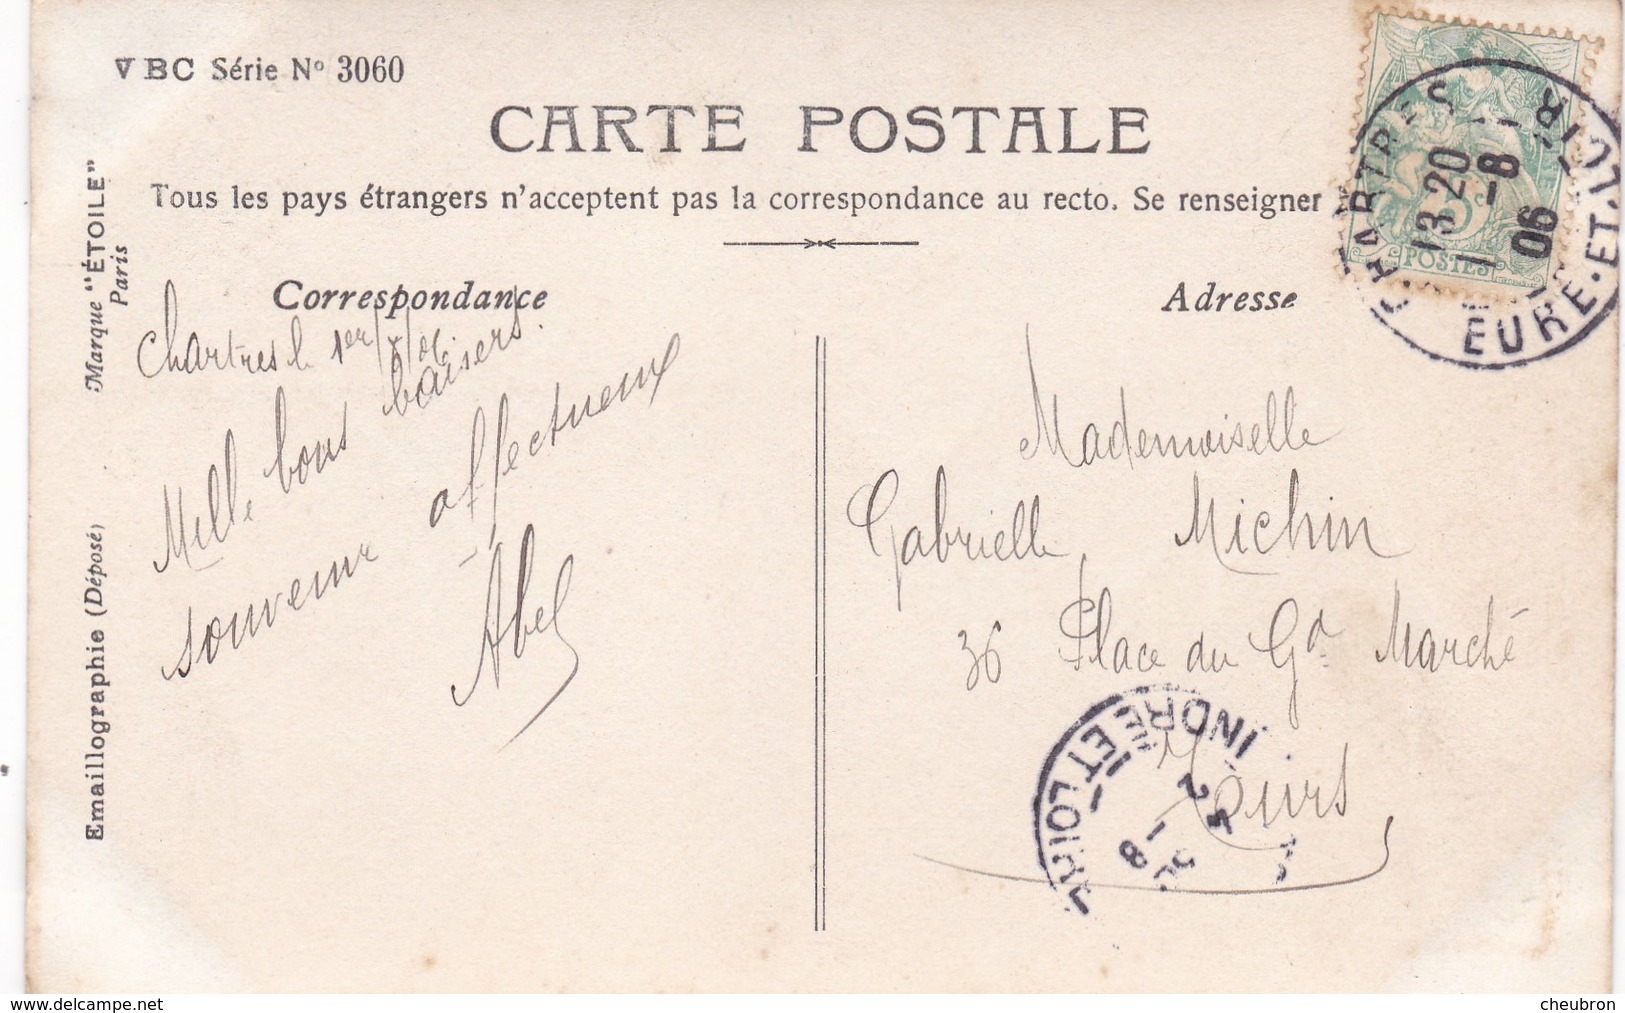 VBC Série No 3060
CARTE POSTALE
Tous les pays étrangers n'acceptent pas la correspondance au recto. Se renseigner
Marque "ÉTOILE"
Paris
Emaillographie (Déposé)
Correspondance
Chartres le 1er/8/06.
Mille bons baisers.
souvenir affectueux
Abel
Adresse
Mademoiselle
Gabrielle Michin
36 Place du Gd Marché
Tours
POSTES
5c
CHARTRES
13 20
1 -8
06
EURE-ET-LOIR
INDRE ET LOIRE
2 -8
www.delcampe.net
cheubron